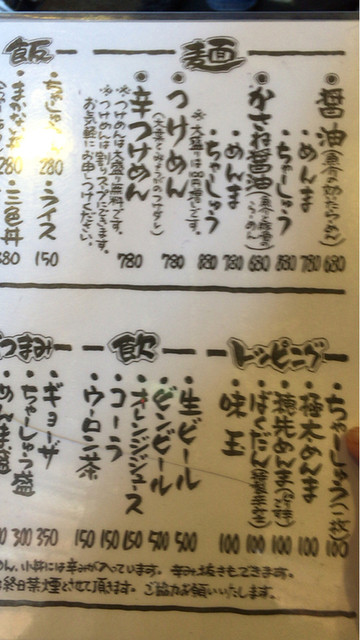 麺
◉醤油(魚介の効いたらーめん) 680
・めんま 780
・ちゃーしゅう 880
◉かさね醤油(魚介と豚骨のらーめん) 680
・めんま 780
・ちゃーしゅう 880
※大盛りは100円増です。
◉つけめん 780
◉辛つけめん 780
※つけめんは大盛り無料です。
※つけめんは割りスープがございます。
お気軽にお申しつけください。
飯
280
・ライス 150
・まかない丼 280
・三色丼
トッピング
・ちゃーしゅう(二枚) 100
・極太めんま 100
・穂先めんま 100
・ばくだん 100
・味玉 100
飲
・生ビール 500
・ビンビール 500
・オレンジジュース 150
・コーラ 150
・ウーロン茶 150
つまみ
・ギョーザ 350
・ちゃーしゅう盛 300
・めんま盛
辛み抜きもできます。
終日禁煙とさせて頂きます。ご協力お願いいたします。